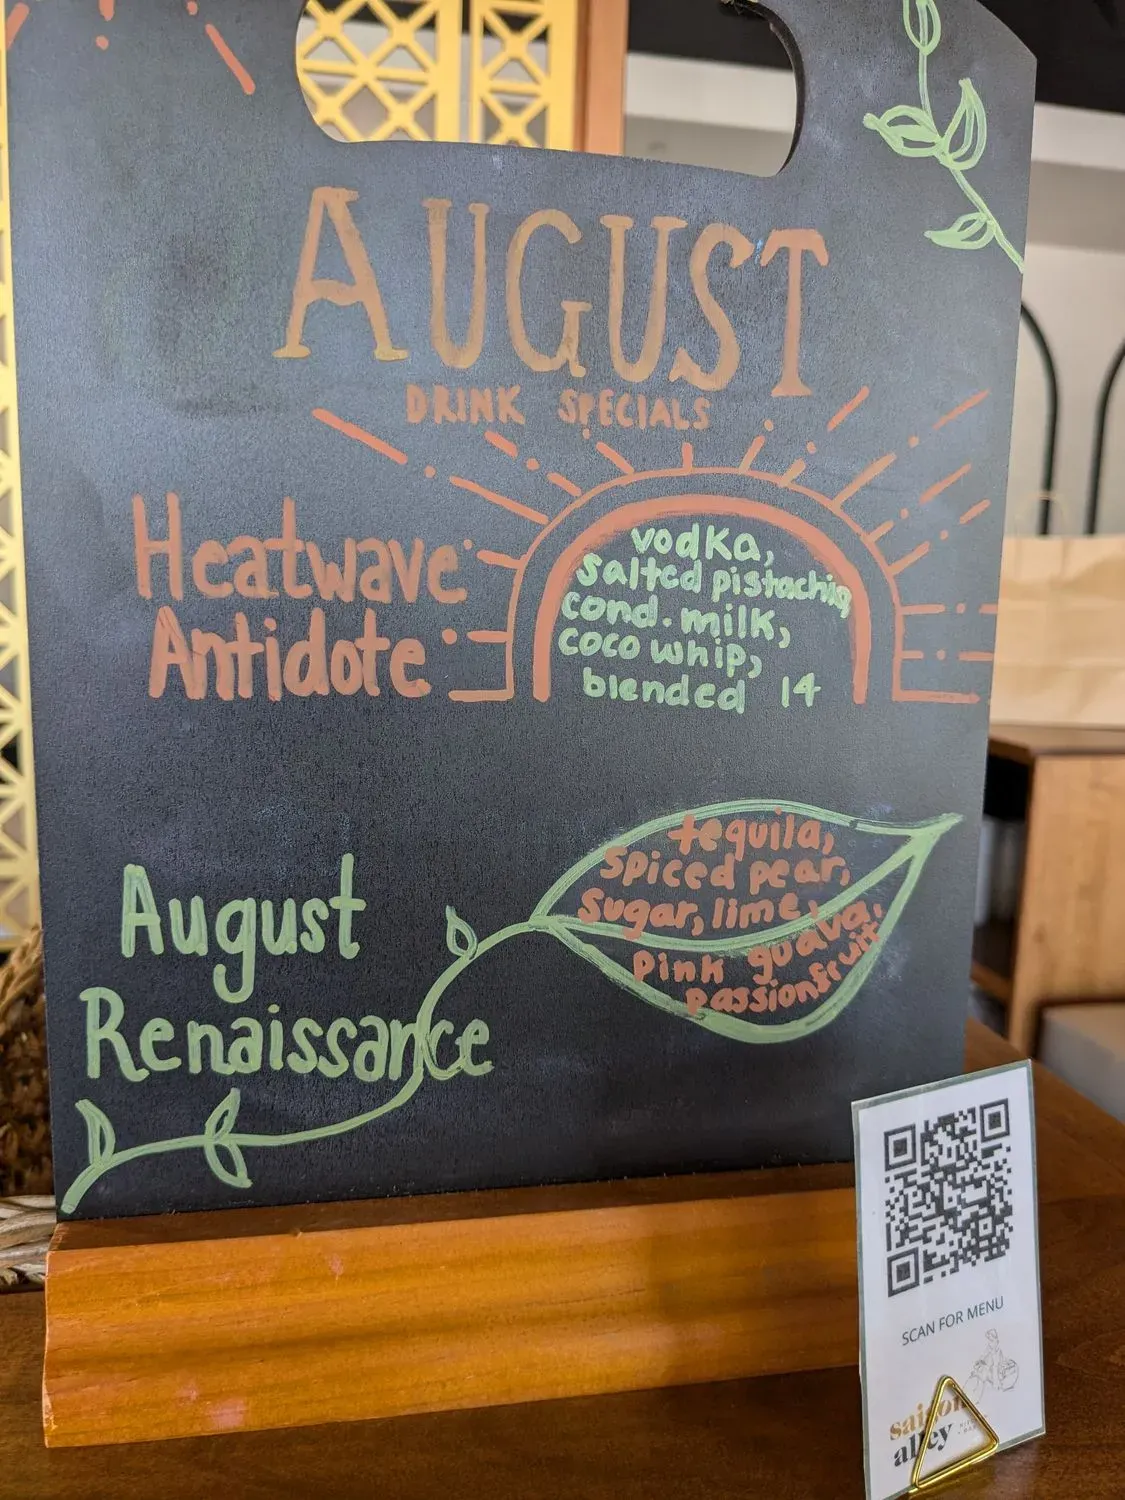 AUGUST
DRINK SPECIALS
Heatwave
Antidote
vodka,
salted pistachio
cond. milk,
coco whip,
blended 14
August
Renaissance
tequila,
spiced pear,
sugar, lime,
pink guava,
passionfruit
SCAN FOR MENU
saigon
alley